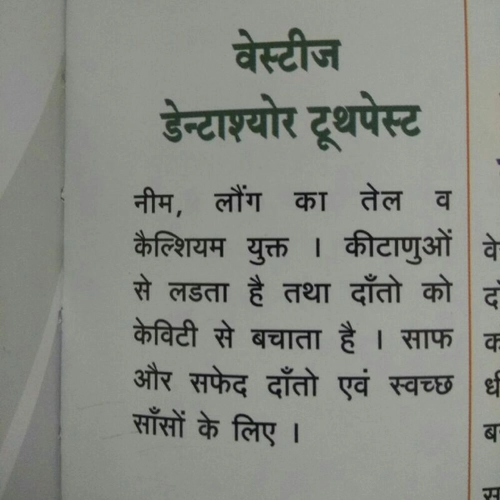 वेस्टीज
डेन्टाश्योर टूथपेस्ट
नीम, लौंग का तेल व
कैल्शियम युक्त । कीटाणुओं
से लडता है तथा दाँतो को
केविटी से बचाता है । साफ
और सफेद दाँतो एवं स्वच्छ
साँसों के लिए ।